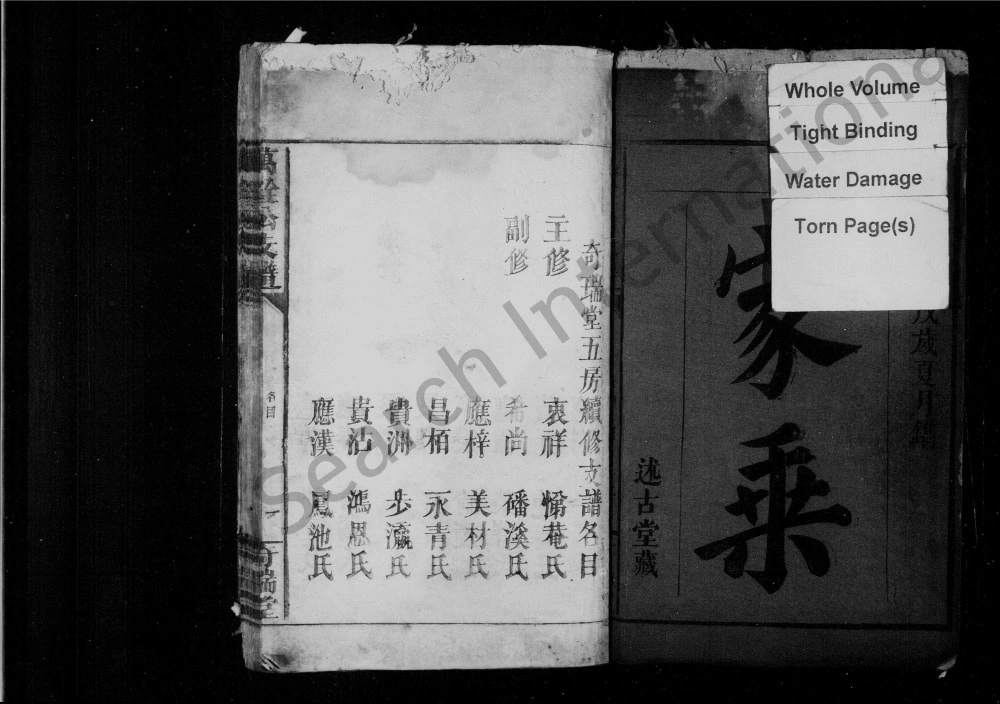 Whole Volume
Tight Binding
Water Damage
Torn Page(s)
歲夏月譜
家乘
述古堂藏
奇瑞堂五房續修支譜名目
主修 衷祥 菴氏
副修 希尚 磻溪氏
應梓 美材氏
昌栢 永青氏
貴洲 步瀛氏
貴沾 鴻恩氏
應漢 鳳池氏
公支譜
名目
一
奇瑞堂
Search International